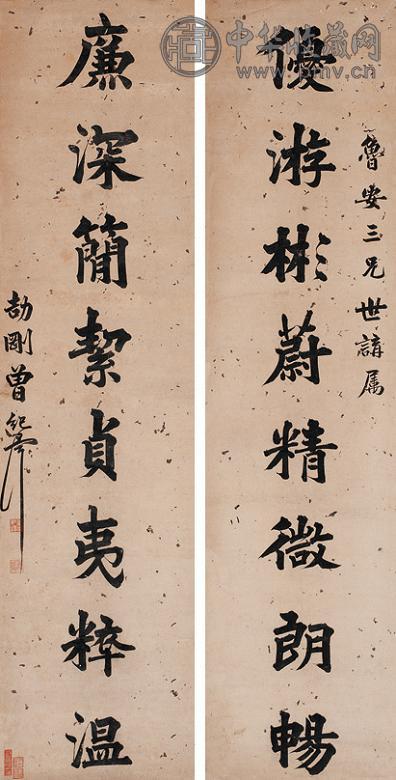 魯安三兄世講属
優游彬蔚精微朗暢
廉深簡絜貞夷粹温
劼剛曾紀澤
中华收藏网
www.pmv.cn